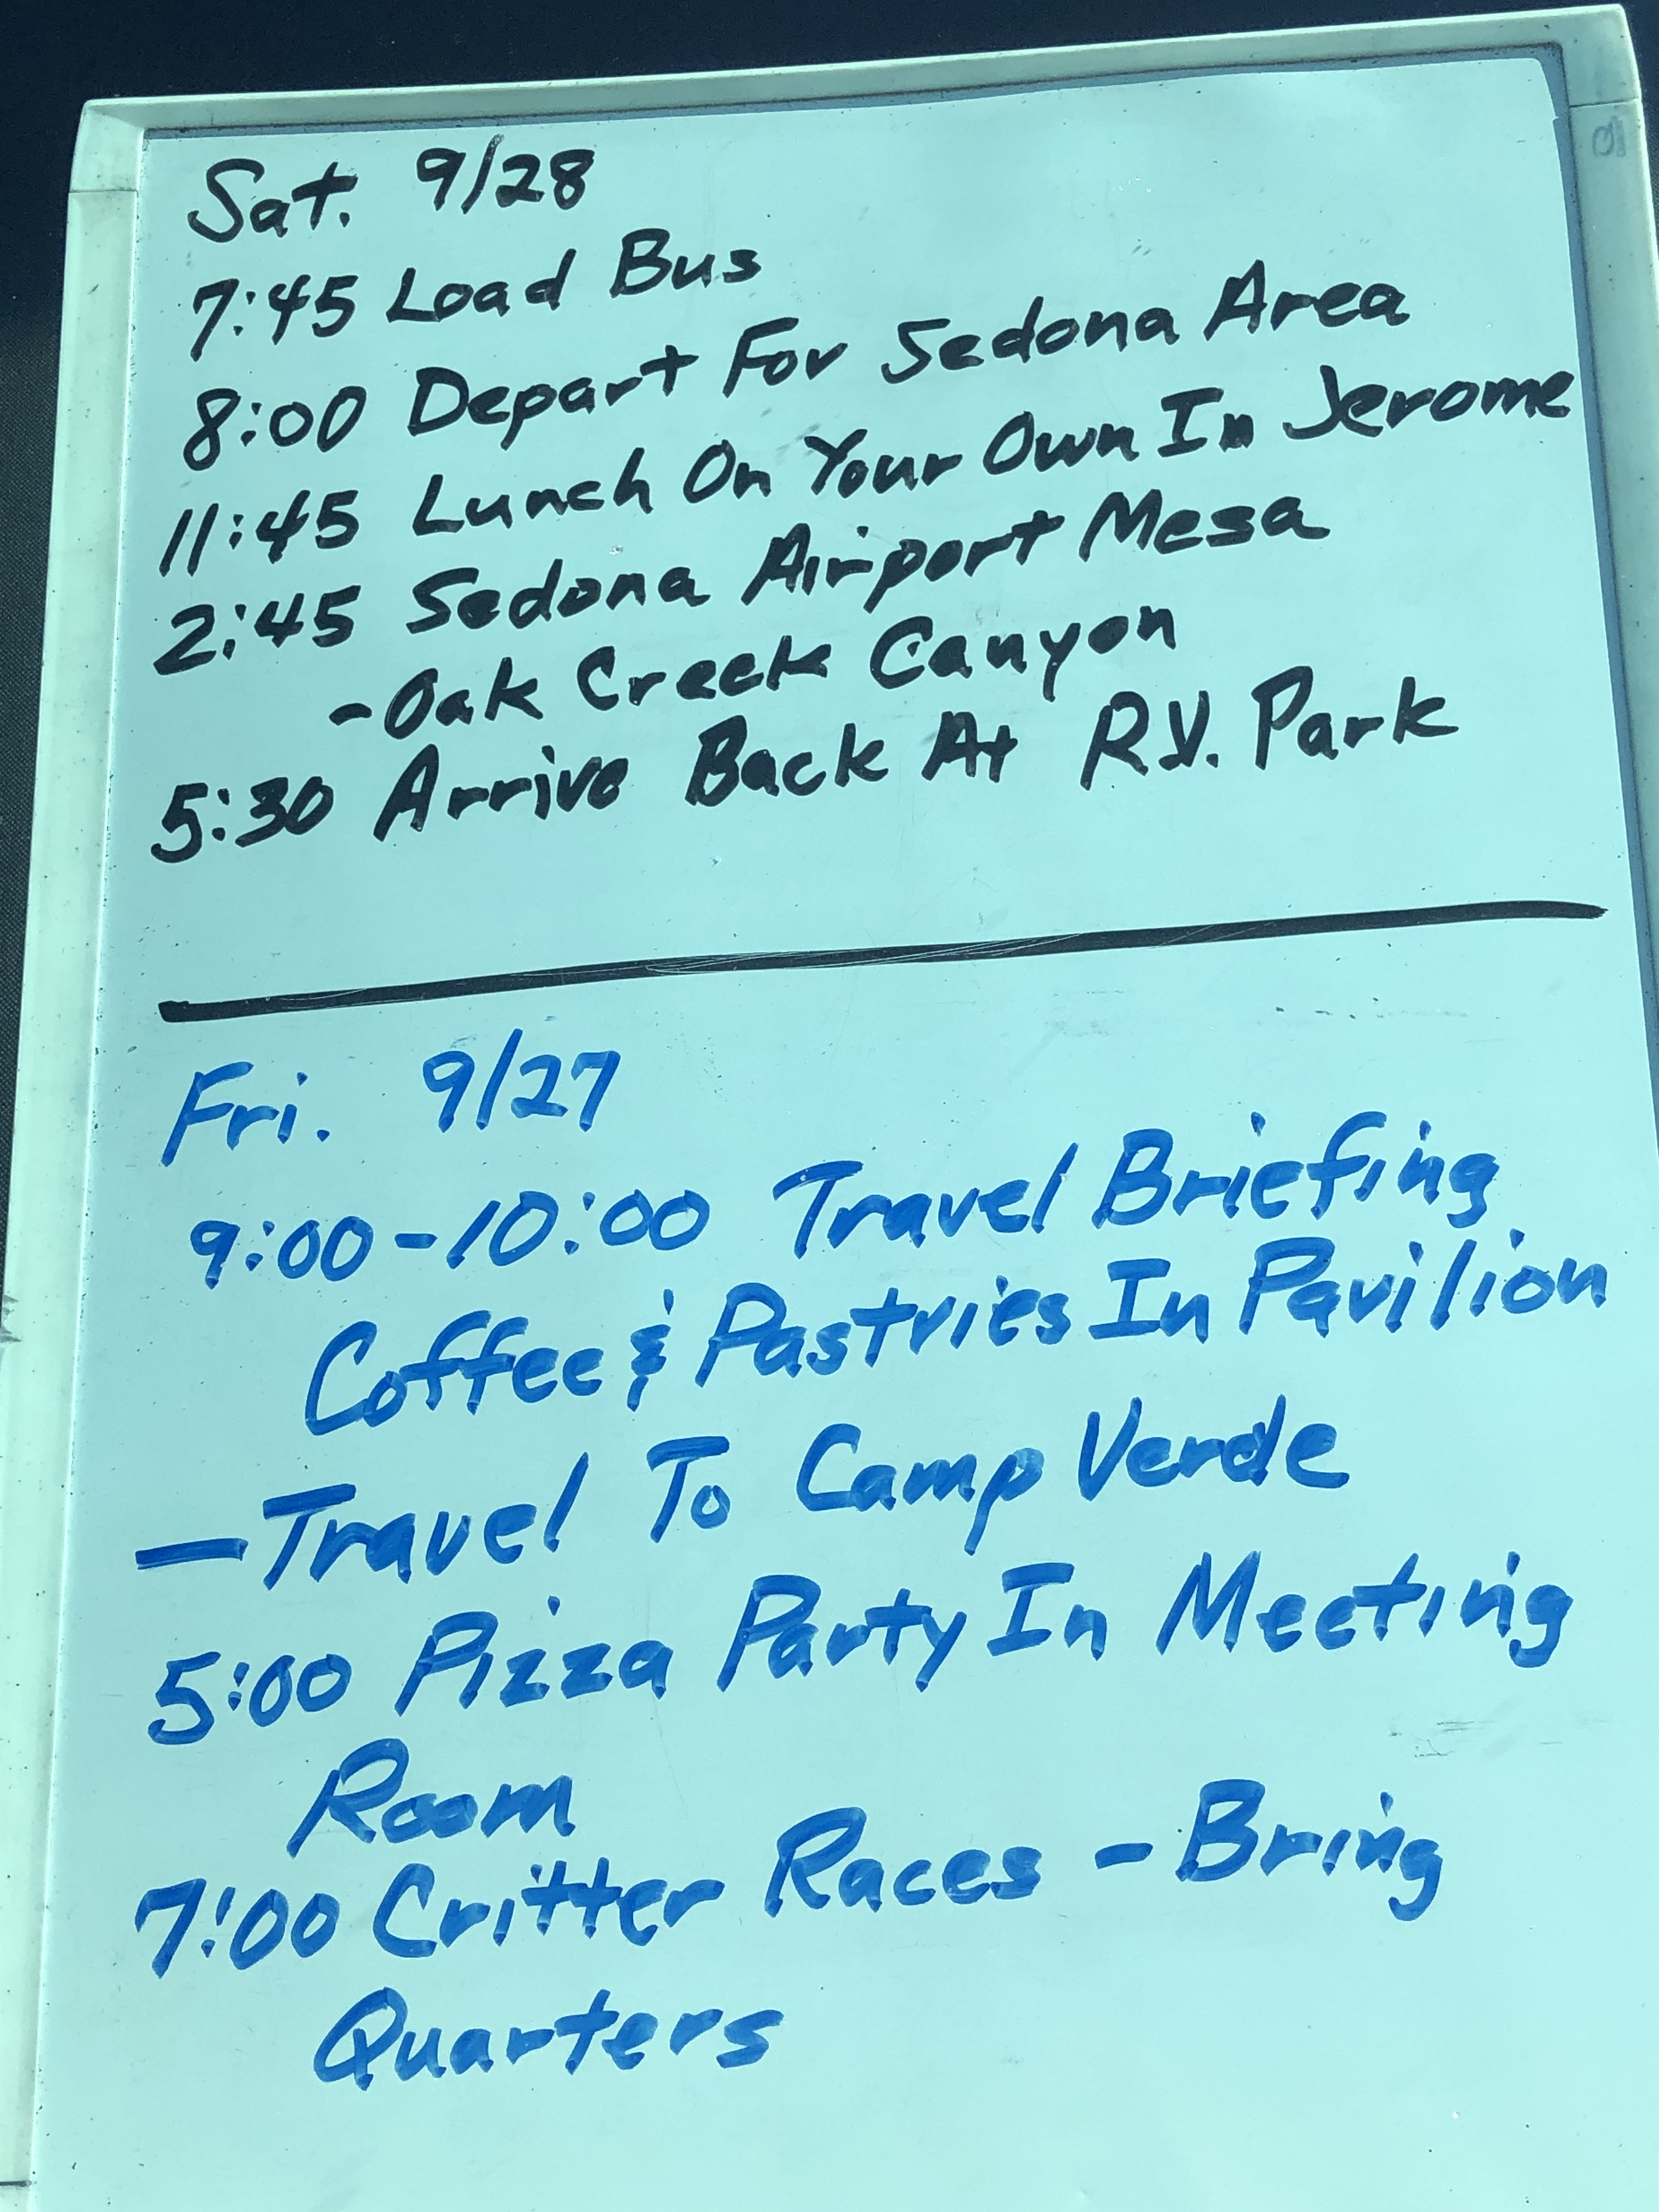 Sat. 9/28
7:45 Load Bus
8:00 Depart For Sedona Area
11:45 Lunch On Your Own In Jerome
2:45 Sedona Airport Mesa
-Oak Creek Canyon
5:30 Arrive Back At R.V. Park
Fri. 9/27
9:00-10:00 Travel Briefing
Coffee & Pastries In Pavilion
- Travel To Camp Verde
5:00 Pizza Party In Meeting
Room
7:00 Critter Races - Bring
Quarters